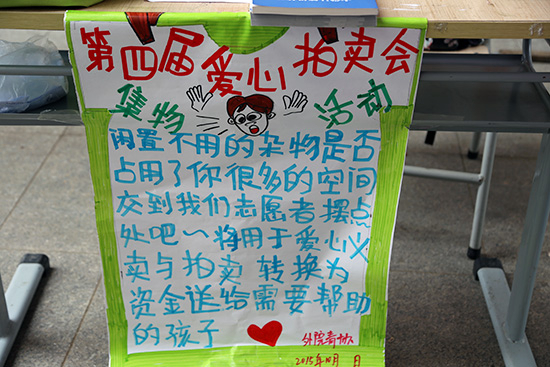 第四届爱心拍卖会
集物 活动
闲置不用的杂物是否
占用了你很多的空间
交到我们志愿者摆点
处吧~将用于爱心义
卖与拍卖 转换为
资金送给需要帮助
的孩子
外院青协
2015年 月 日